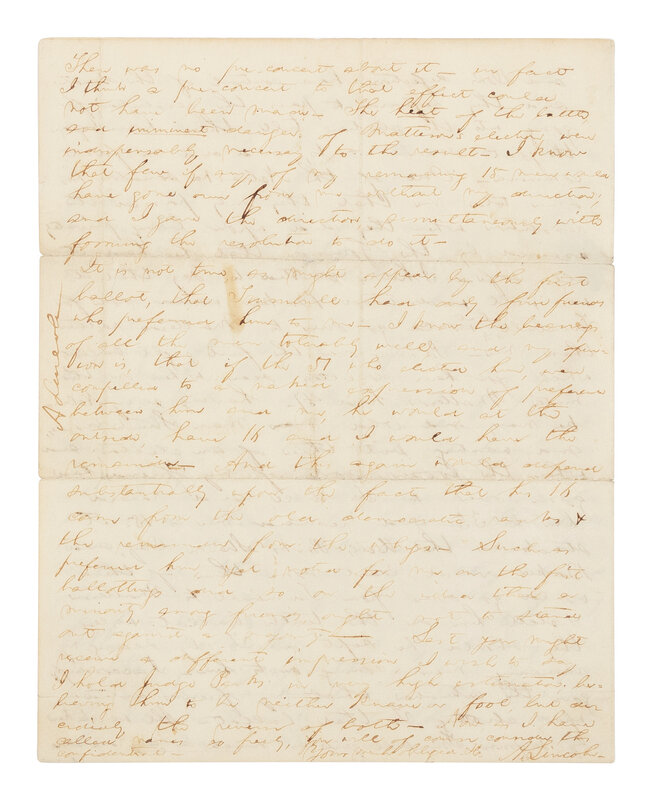 There was no pre-concert about it — in fact
I think a pre-concert to that effect could
not have been made — The heat of the battle
and imminent danger of Mattesons election were
indispensably necessary to the result — I know
that few if any, of my remaining 15 men would
have gone over from me without my direction;
and I gave the direction simultaneously with
forming the resolution to do it —
It is not true, as might appear by the first
ballot, that Trumbull had only five friends
who preferred him to me — I know the
of all the men tolerably well, and my opin-
ion is, that if the 51 who elected him, were
compelled to a naked expression of preference
between him and me, he would at the
outside, have 16 and I would have the
remainder — And this again would depend
substantially upon the fact that his 16
came from the old democratic ranks &
the remainder from the Such as
preferred him, yet voted for me on the first
ballotings and so on the idea that a
minority among friends, ought not to stand
out against a majority — Lest you might
receive a different impression, I wish to say
I hold Judge Parks in very high estimation; be-
lieving him to be neither knave or fool, but de-
cidedly the reverse of both — Now, as I have
called names so freely, you will of course consider this
confidential — Yours A. Lincoln —